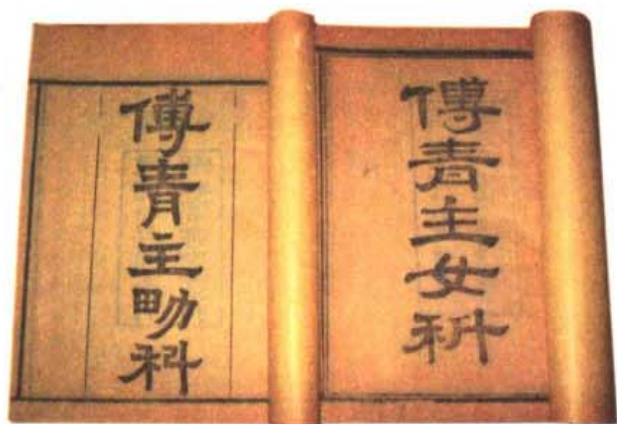 傅青主女科
傅青主男科